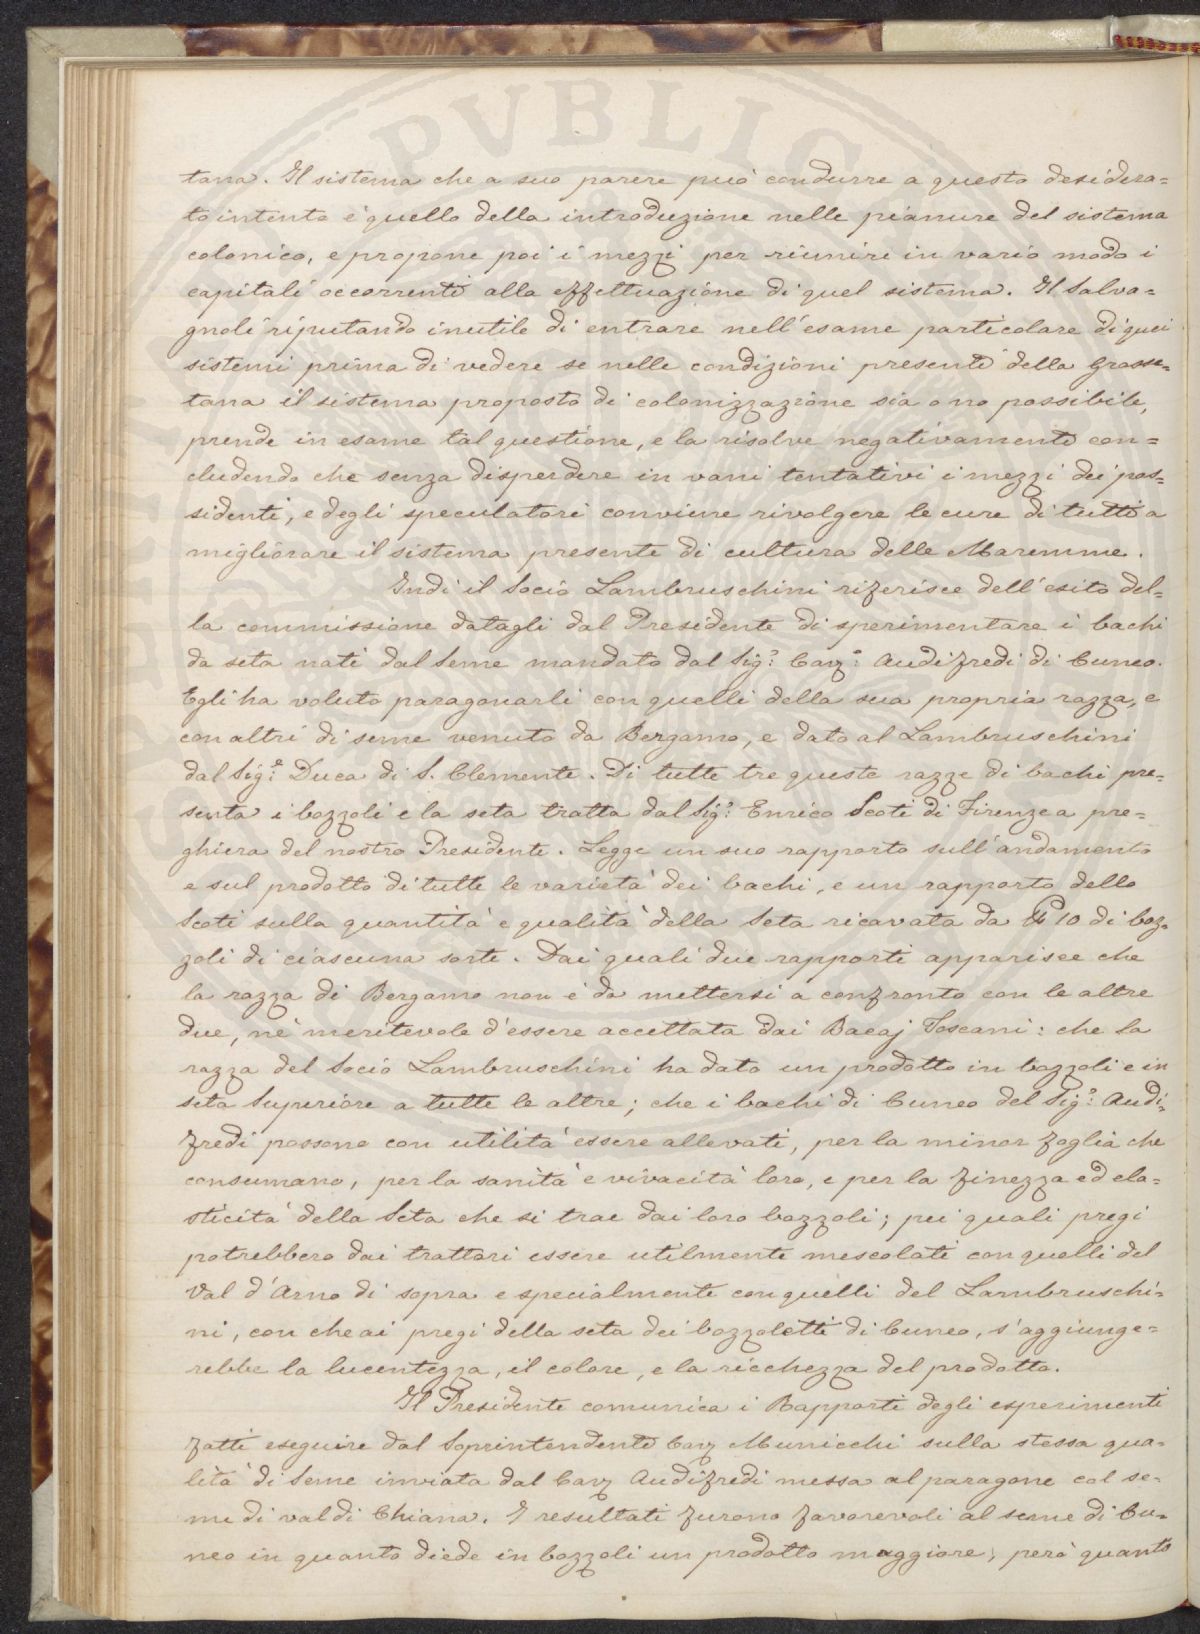 PVBLIC
tana. Il sistema che a suo parere può condurre a questo desidera=
to intento è quello della introduzione nelle pianure del sistema
colonico, e propone poi i mezzi per riunire in vario modo i
capitali occorrenti alla effettuazione di quel sistema. Il Salva=
gnoli riputando inutile di entrare nell'esame particolare di quei
sistemi prima di vedere se nelle condizioni presenti della Grosse=
tana il sistema proposto di colonizzazione sia o no possibile,
prende in esame tal questione, e la risolve negativamente con=
cludendo che senza disperdere in vani tentativi i mezzi dei pos=
sidenti, e degli speculatori conviene rivolgere le cure di tutti a
migliorare il sistema presente di cultura delle Maremme.
Indi il Socio Lambruschini riferisce dell'esito del=
la commissione datagli dal Presidente di sperimentare i bachi
da seta nati dal Seme mandato dal Sig.r Cav.r Audifredi di Cuneo.
Egli ha voluto paragonarli con quelli della sua propria razza, e
con altri di seme venuto da Bergamo, e dato al Lambruschini
dal Sig.e Duca di S. Clemente. Di tutte tre queste razze di bachi pre=
senta i bozzoli e la seta tratta dal Sig.r Enrico Scoti di Firenze a pre=
ghiera del nostro Presidente. Legge un suo rapporto sull'andamento
e sul prodotto di tutte le varietà dei bachi, e un rapporto dello
Scoti sulla quantità e qualità della Seta ricavata da 10 di boz=
zoli di ciascuna sorte. Dai quali due rapporti apparisce che
la razza di Bergamo non è da mettersi a confronto con le altre
due, nè meritevole d'essere accettata dai Bacaj Toscani: che la
razza del Socio Lambruschini ha dato un prodotto in bozzoli e in
seta Superiore a tutte le altre; che i bachi di Cuneo del Sig.r Audi=
fredi possono con utilità essere allevati, per la minor foglia che
consumano, per la sanità e vivacità loro, e per la finezza ed ela=
sticità della Seta che si trae dai loro bozzoli; pei quali pregi
potrebbero dai trattori essere utilmente mescolati con quelli del
Val d'Arno di sopra e specialmente con quelli del Lambruschi=
ni, con che ai pregi della seta dei bozzoletti di Cuneo, s'aggiunge=
rebbe la lucentezza, il colore, e la ricchezza del prodotto.
Il Presidente comunica i Rapporti degli esperimenti
fatti eseguire dal Soprintendente Cav Municchi sulla stessa qua=
lità di Seme inviata dal Cav Audifredi messa al paragone col se=
me di val di Chiana. I resultati furono favorevoli al seme di Cu=
neo in quanto diede in bozzoli un prodotto maggiore, però quanto